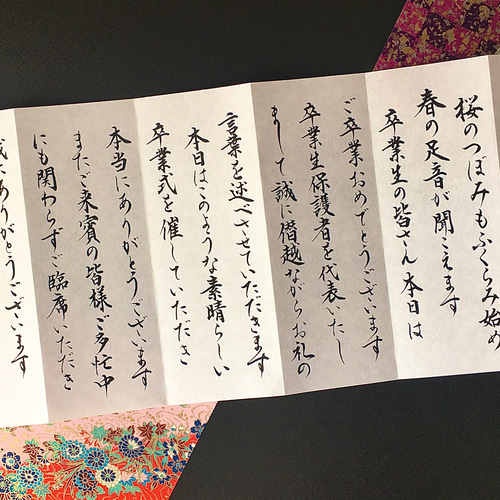 桜のつぼみもふくらみ始め
春の足音が聞こえます
卒業生の皆さん 本日は
ご卒業おめでとうございます
卒業生保護者を代表いたし
まして誠に僭越ながらお礼の
言葉を述べさせていただきます
本日はこのような素晴らしい
卒業式を催していただき
本当にありがとうございます
またご来賓の皆様ご多忙中
にも関わらずご臨席いただき
誠にありがとうございます